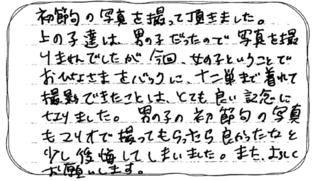 初節句の写真を撮って頂きました。
上の子達は男の子だったので写真を撮
りませんでしたが今回、女の子ということで
おひなさまをバックに、十二単まで着れて
撮影できたことは、とても良い記念に
なりました。男の子の初節句の写真
もマリオで撮ってもらったら良かったなと
少し後悔してしまいました。また、よろしく
お願いします。